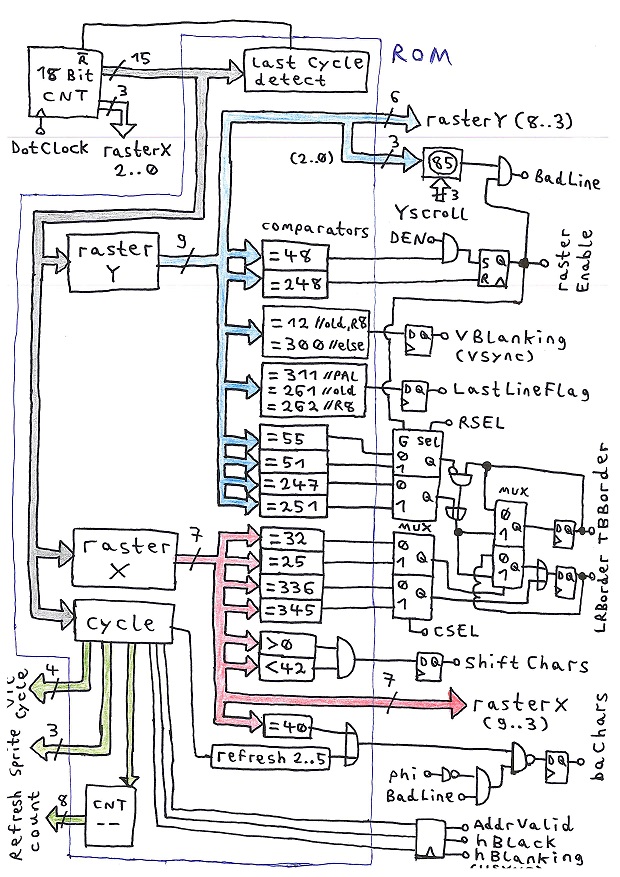 ROM
R
18 Bit
CNT
15
3
Last Cycle
detect
DotClock
rasterX
2..0
6
rasterY (8..3)
(2..0)
3
85
3
Yscroll
BadLine
raster
Y
9
comparators
DEN
= 48
= 248
S Q
R
raster
Enable
= 12 //old,R8
= 300 //else
D Q
VBlanking
(VSync)
= 311 //PAL
= 261 //old
= 262 //R8
D Q
LastLineFlag
RSEL
= 55
= 51
= 247
= 251
G Sel
0
1
Q
0
1
Q
MUX
0
1
Q
0
1
Q
D Q
TBBorder
raster
X
7
= 32
= 25
= 336
= 345
MUX
0
1
Q
0
1
Q
D Q
LRBorder
CSEL
Cycle
> 0
< 42
D Q
ShiftChars
7
rasterX
(9..3)
= 40
refresh 2..5
4
VIC
Cycle
3
Sprite
8
Refresh
count
CNT
--
phi
BadLine
D Q
baChars
AddrValid
hBlack
hBlanking